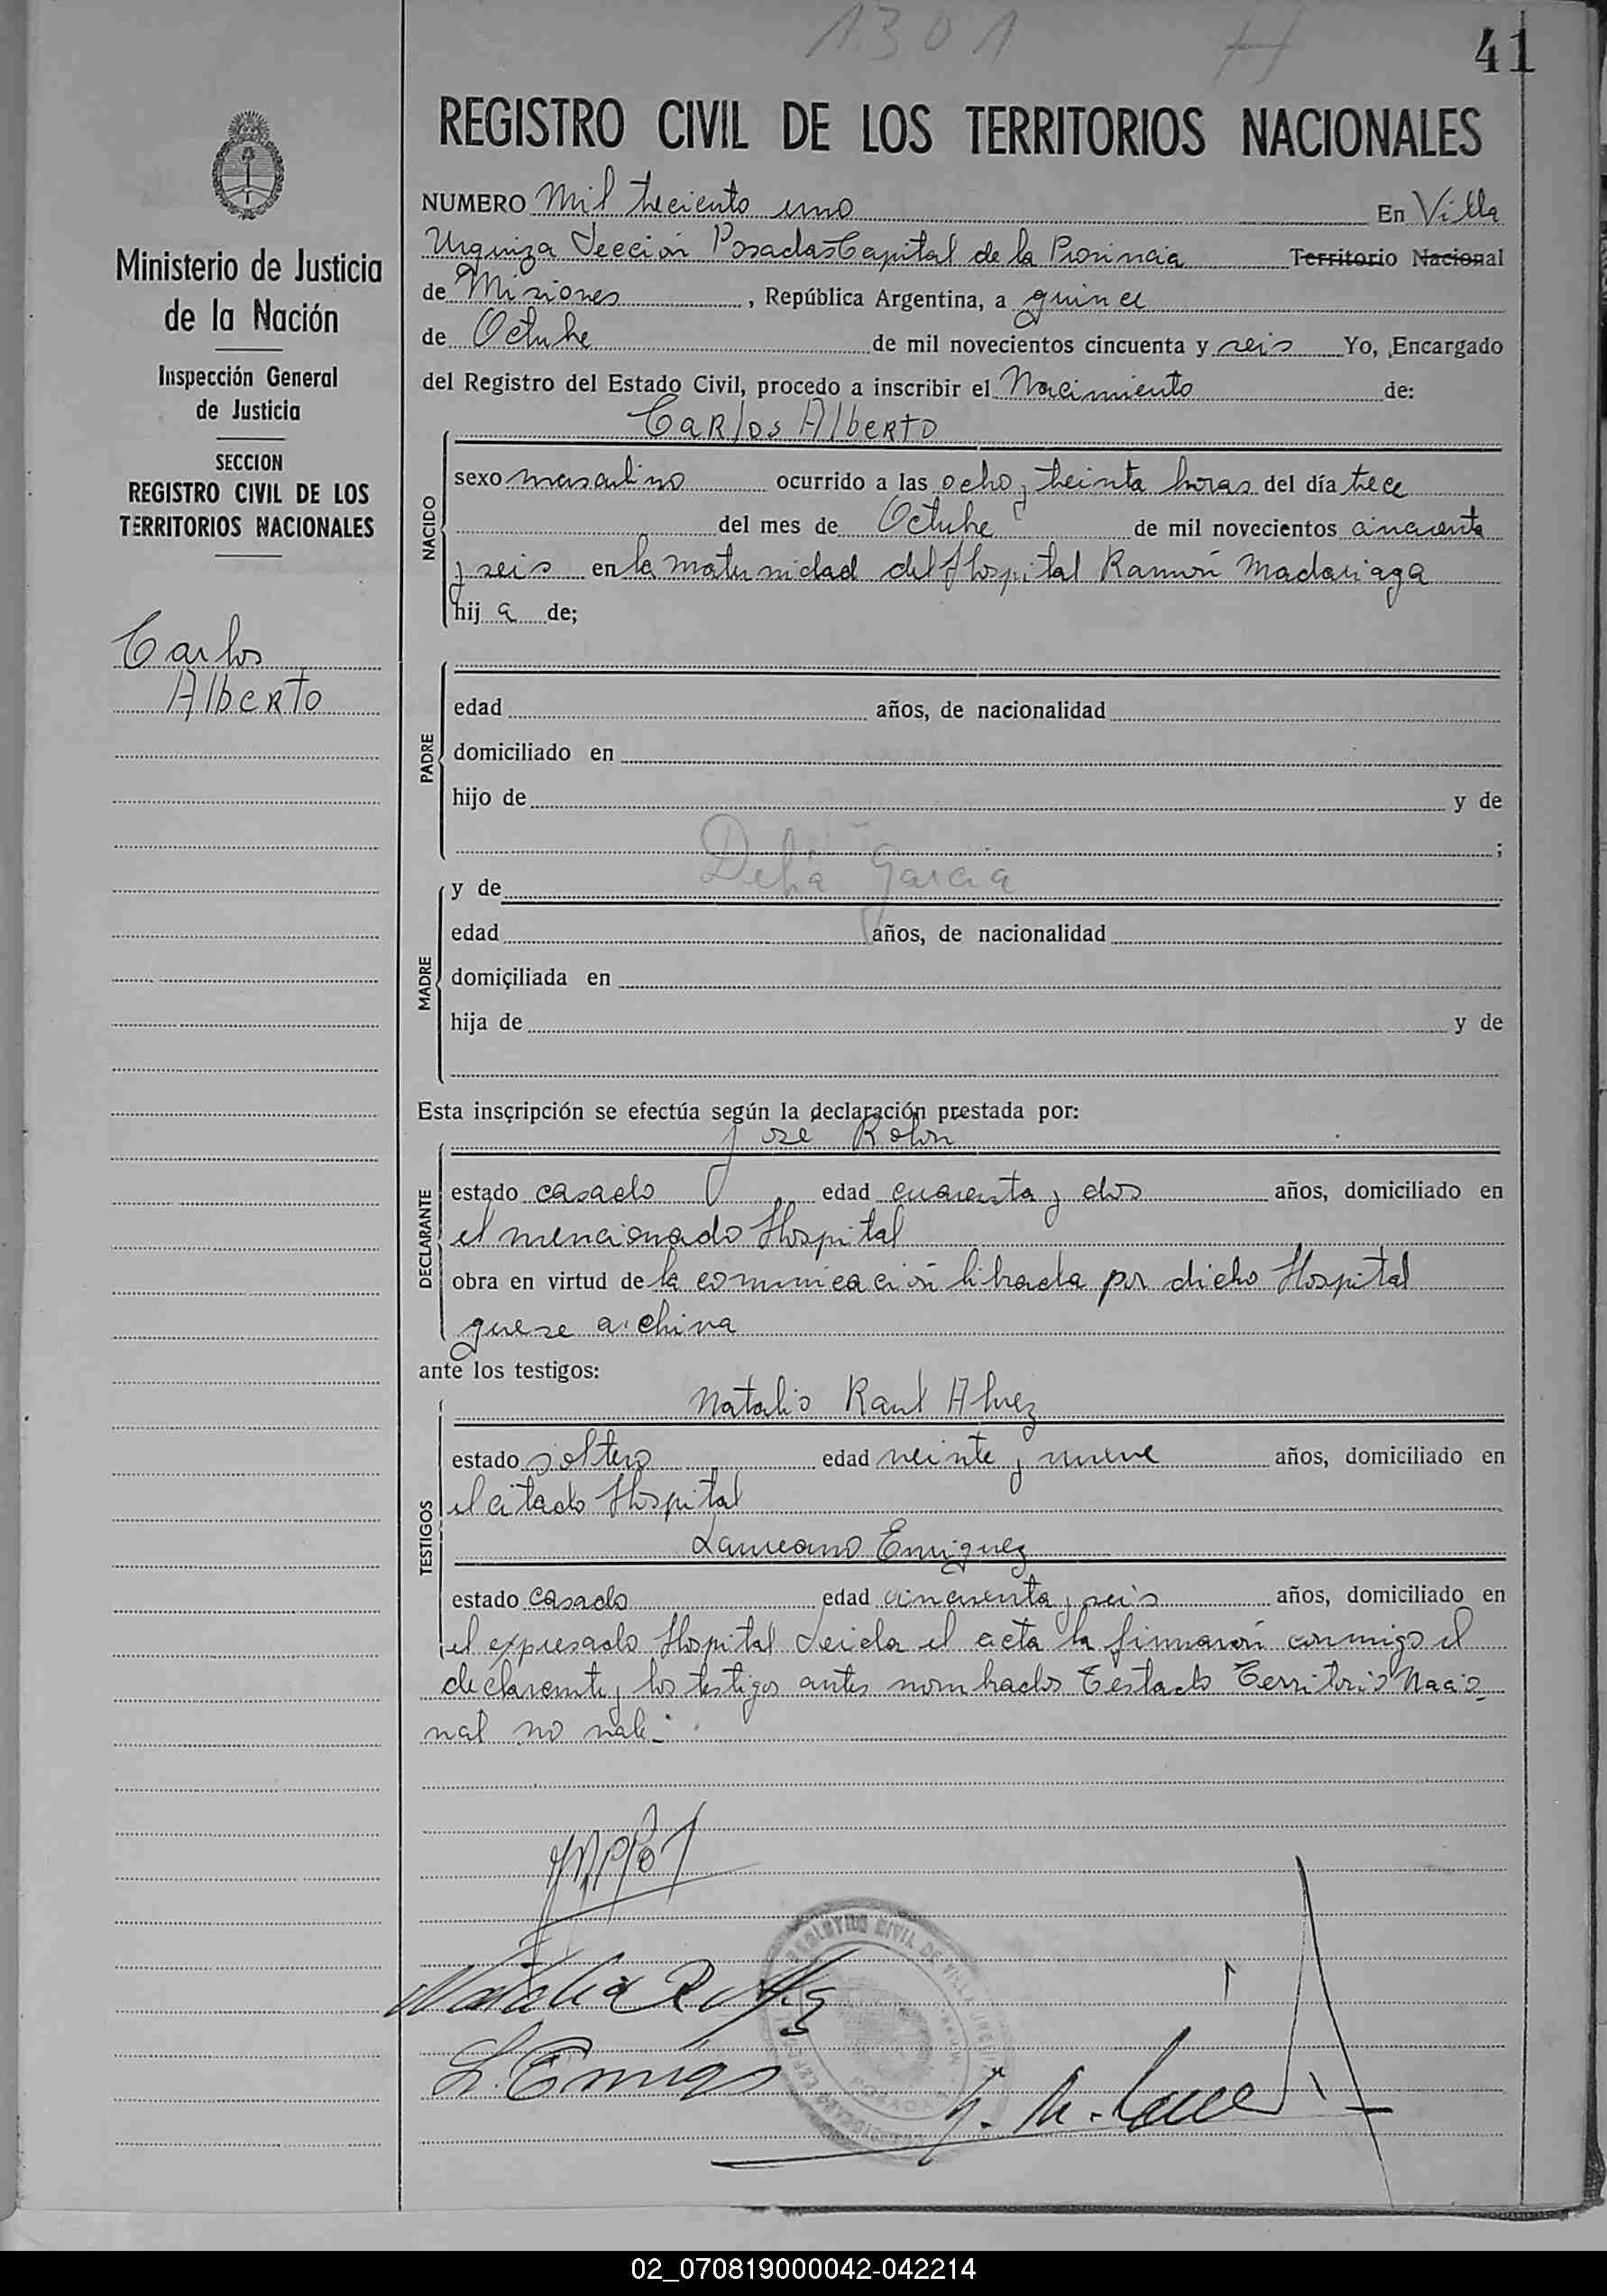 1301 H
41
REGISTRO CIVIL DE LOS TERRITORIOS NACIONALES
Ministerio de Justicia
de la Nación
Inspección General
de Justicia
SECCION
REGISTRO CIVIL DE LOS
TERRITORIOS NACIONALES
Carlos
Alberto
NUMERO Mil treciento uno En Villa
Urquiza Sección Posadas Capital de la Provincia Territorio Nacional
de Misiones, República Argentina, a quince
de Octubre de mil novecientos cincuenta y seis Yo, Encargado
del Registro del Estado Civil, procedo a inscribir el Nacimiento de:
Carlos Alberto
NACIDO
sexo masculino ocurrido a las ocho y treinta horas del día trece
del mes de Octubre de mil novecientos cincuenta
y seis en la maternidad del Hospital Ramón Madariaga
hij a de;
PADRE
edad años, de nacionalidad
domiciliado en
hijo de y de
;
Delia Garcia
MADRE
y de
edad años, de nacionalidad
domiciliada en
hija de y de
Esta inscripción se efectúa según la declaración prestada por:
Jose Rolon
DECLARANTE
estado casado edad cuarenta y dos años, domiciliado en
el mencionado Hospital
obra en virtud de la comunicación librada por dicho Hospital
que se archiva
ante los testigos:
Natalio Raul Alvez
TESTIGOS
estado soltero edad veinte y nueve años, domiciliado en
el citado Hospital
Laureano Enriquez
estado casado edad cincuenta y seis años, domiciliado en
el expresado Hospital Leida el acta la firmaron conmigo el
declarante y los testigos antes nombrados Testado Territorio Nacio
nal no vale.
REGISTRO CIVIL DE VILLA URQUIZA
02_070819000042-042214